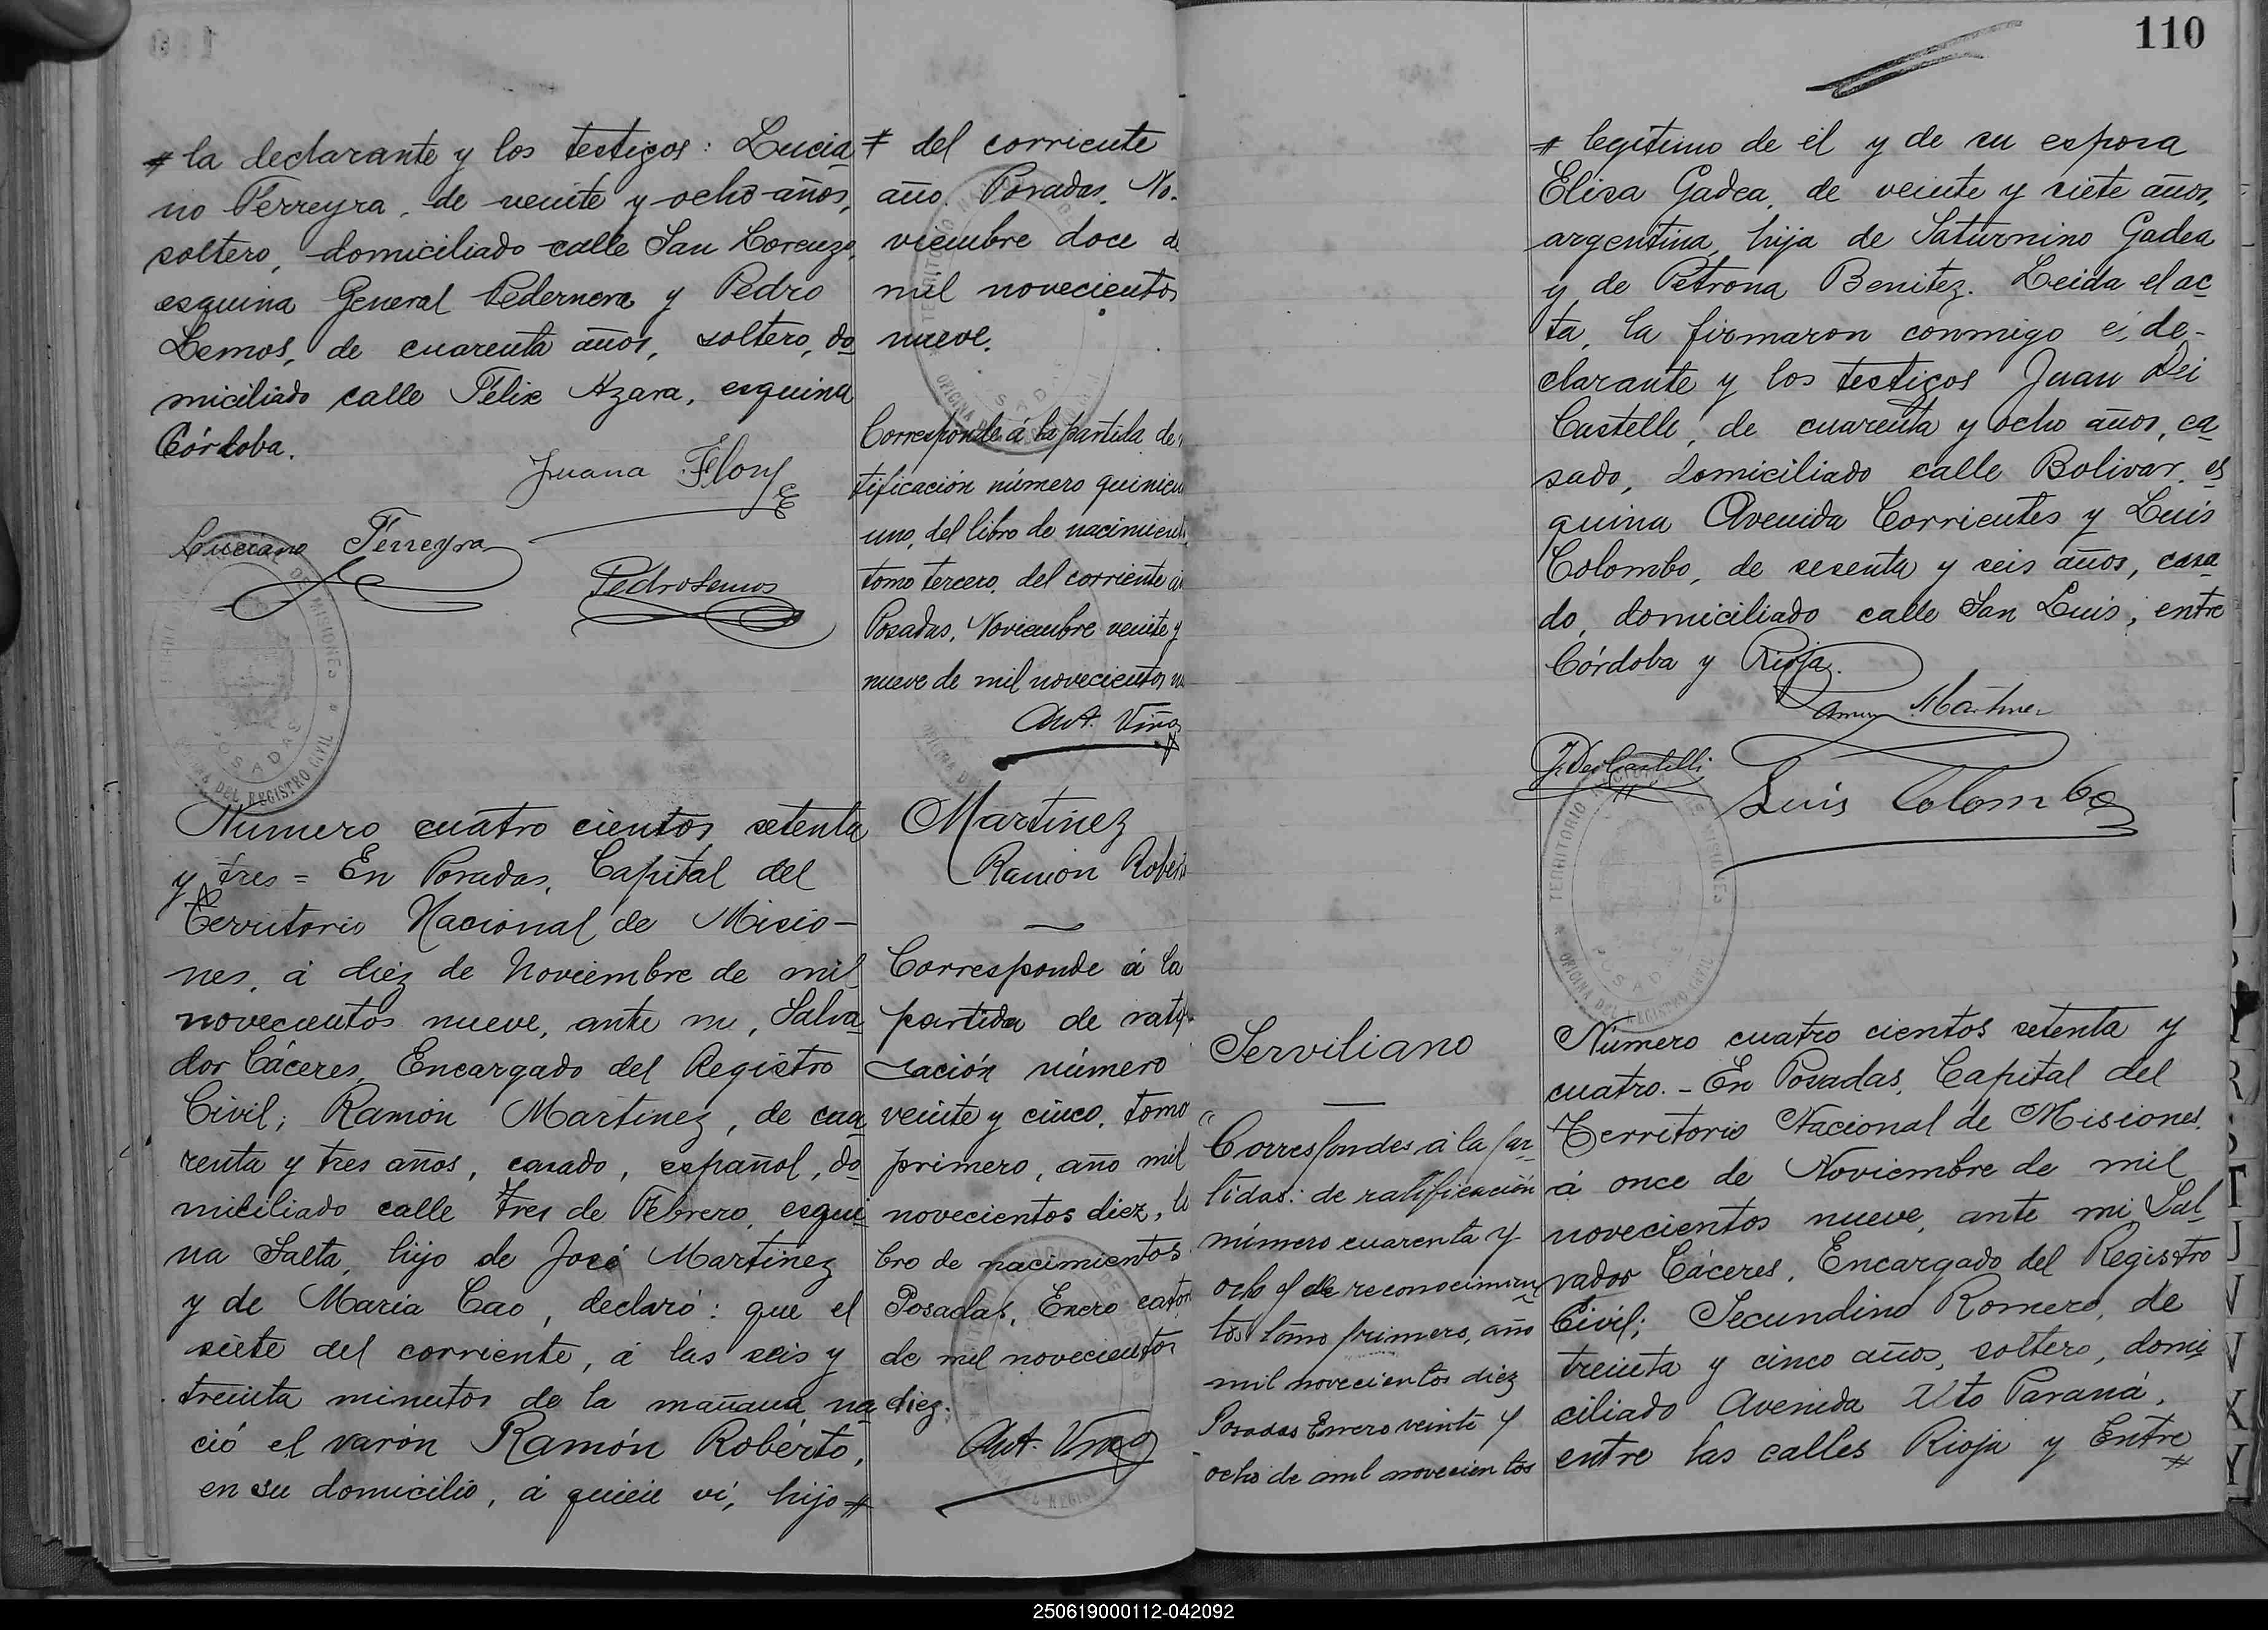 # la declarante y los testigos: Lucia
no Ferreyra, de veinte y ocho años,
soltero, domiciliado calle San Lorenzo,
esquina General Pedernera y Pedro
Lemos, de cuarenta años, soltero, do
miciliado calle Félix Azara, esquina
Córdoba.
Juana Flory
Luciano Ferreyra
Pedro Lemos
Número cuatro cientos setenta
y tres = En Posadas, Capital del
Territorio Nacional de Misio-
nes, á diéz de Noviembre de mil
novecientos nueve, ante mi, Salva
dor Cáceres, Encargado del Registro
Civil; Ramón Martinez, de cua
renta y tres años, casado, español, do
miciliado calle tres de Febrero, esqui
na Salta, hijo de José Martinez
y de Maria Cao, declaró: que el
siete del corriente, á las seis y
treinta minutos de la mañana na
ció el varón Ramón Roberto,
en su domicilio, á quien ví, hijo #
# del corriente
año. Posadas, No-
viembre doce d
mil novecientos
nueve.
Corresponde á la partida de
tificación número quinien
uno, del libro de nacimient
tomo tercero, del corriente añ
Posadas, Noviembre veinte y
nueve de mil novecientos nu
Ant. Viña
Martinez
Ramón Robert
Corresponde á la
partida de ratifi
cación número
veinte y cinco, tomo
primero, año mil
novecientos diez, li
bro de nacimientos
Posadas, Enero cator
de mil novecientos
diez.
Ant. Viña
110
# legítimo de él y de su esposa
Elisa Gadea, de veinte y siete años,
argentina, hija de Saturnino Gadea
y de Petrona Benitez. Leida el ac
ta, la firmaron conmigo el de-
clarante y los testigos Juan Dei
Castelli, de cuarenta y ocho años, ca
sado, domiciliado calle Bolivar, es
quina Avenida Corrientes y Luis
Colombo, de sesenta y seis años, casa
do, domiciliado calle San Luis, entre
Córdoba y Rioja.
Ramon Martinez
J. Dei Castelli
Luis Colombo
Serviliano
Corresponde á la par
tidas: de ratificación
número cuarenta y
ocho y de reconocimien
tos tomo primero, año
mil novecientos diez
Posadas Enero veinte y
ocho de mil novecientos
Número cuatro cientos setenta y
cuatro. - En Posadas, Capital del
Territorio Nacional de Misiones,
á once de Noviembre de mil
novecientos nueve, ante mi Sal
vador Cáceres, Encargado del Registro
Civil; Secundino Romero, de
treinta y cinco años, soltero, domi
ciliado Avenida Alto Paraná,
entre las calles Rioja y Entre
#
250619000112-042092